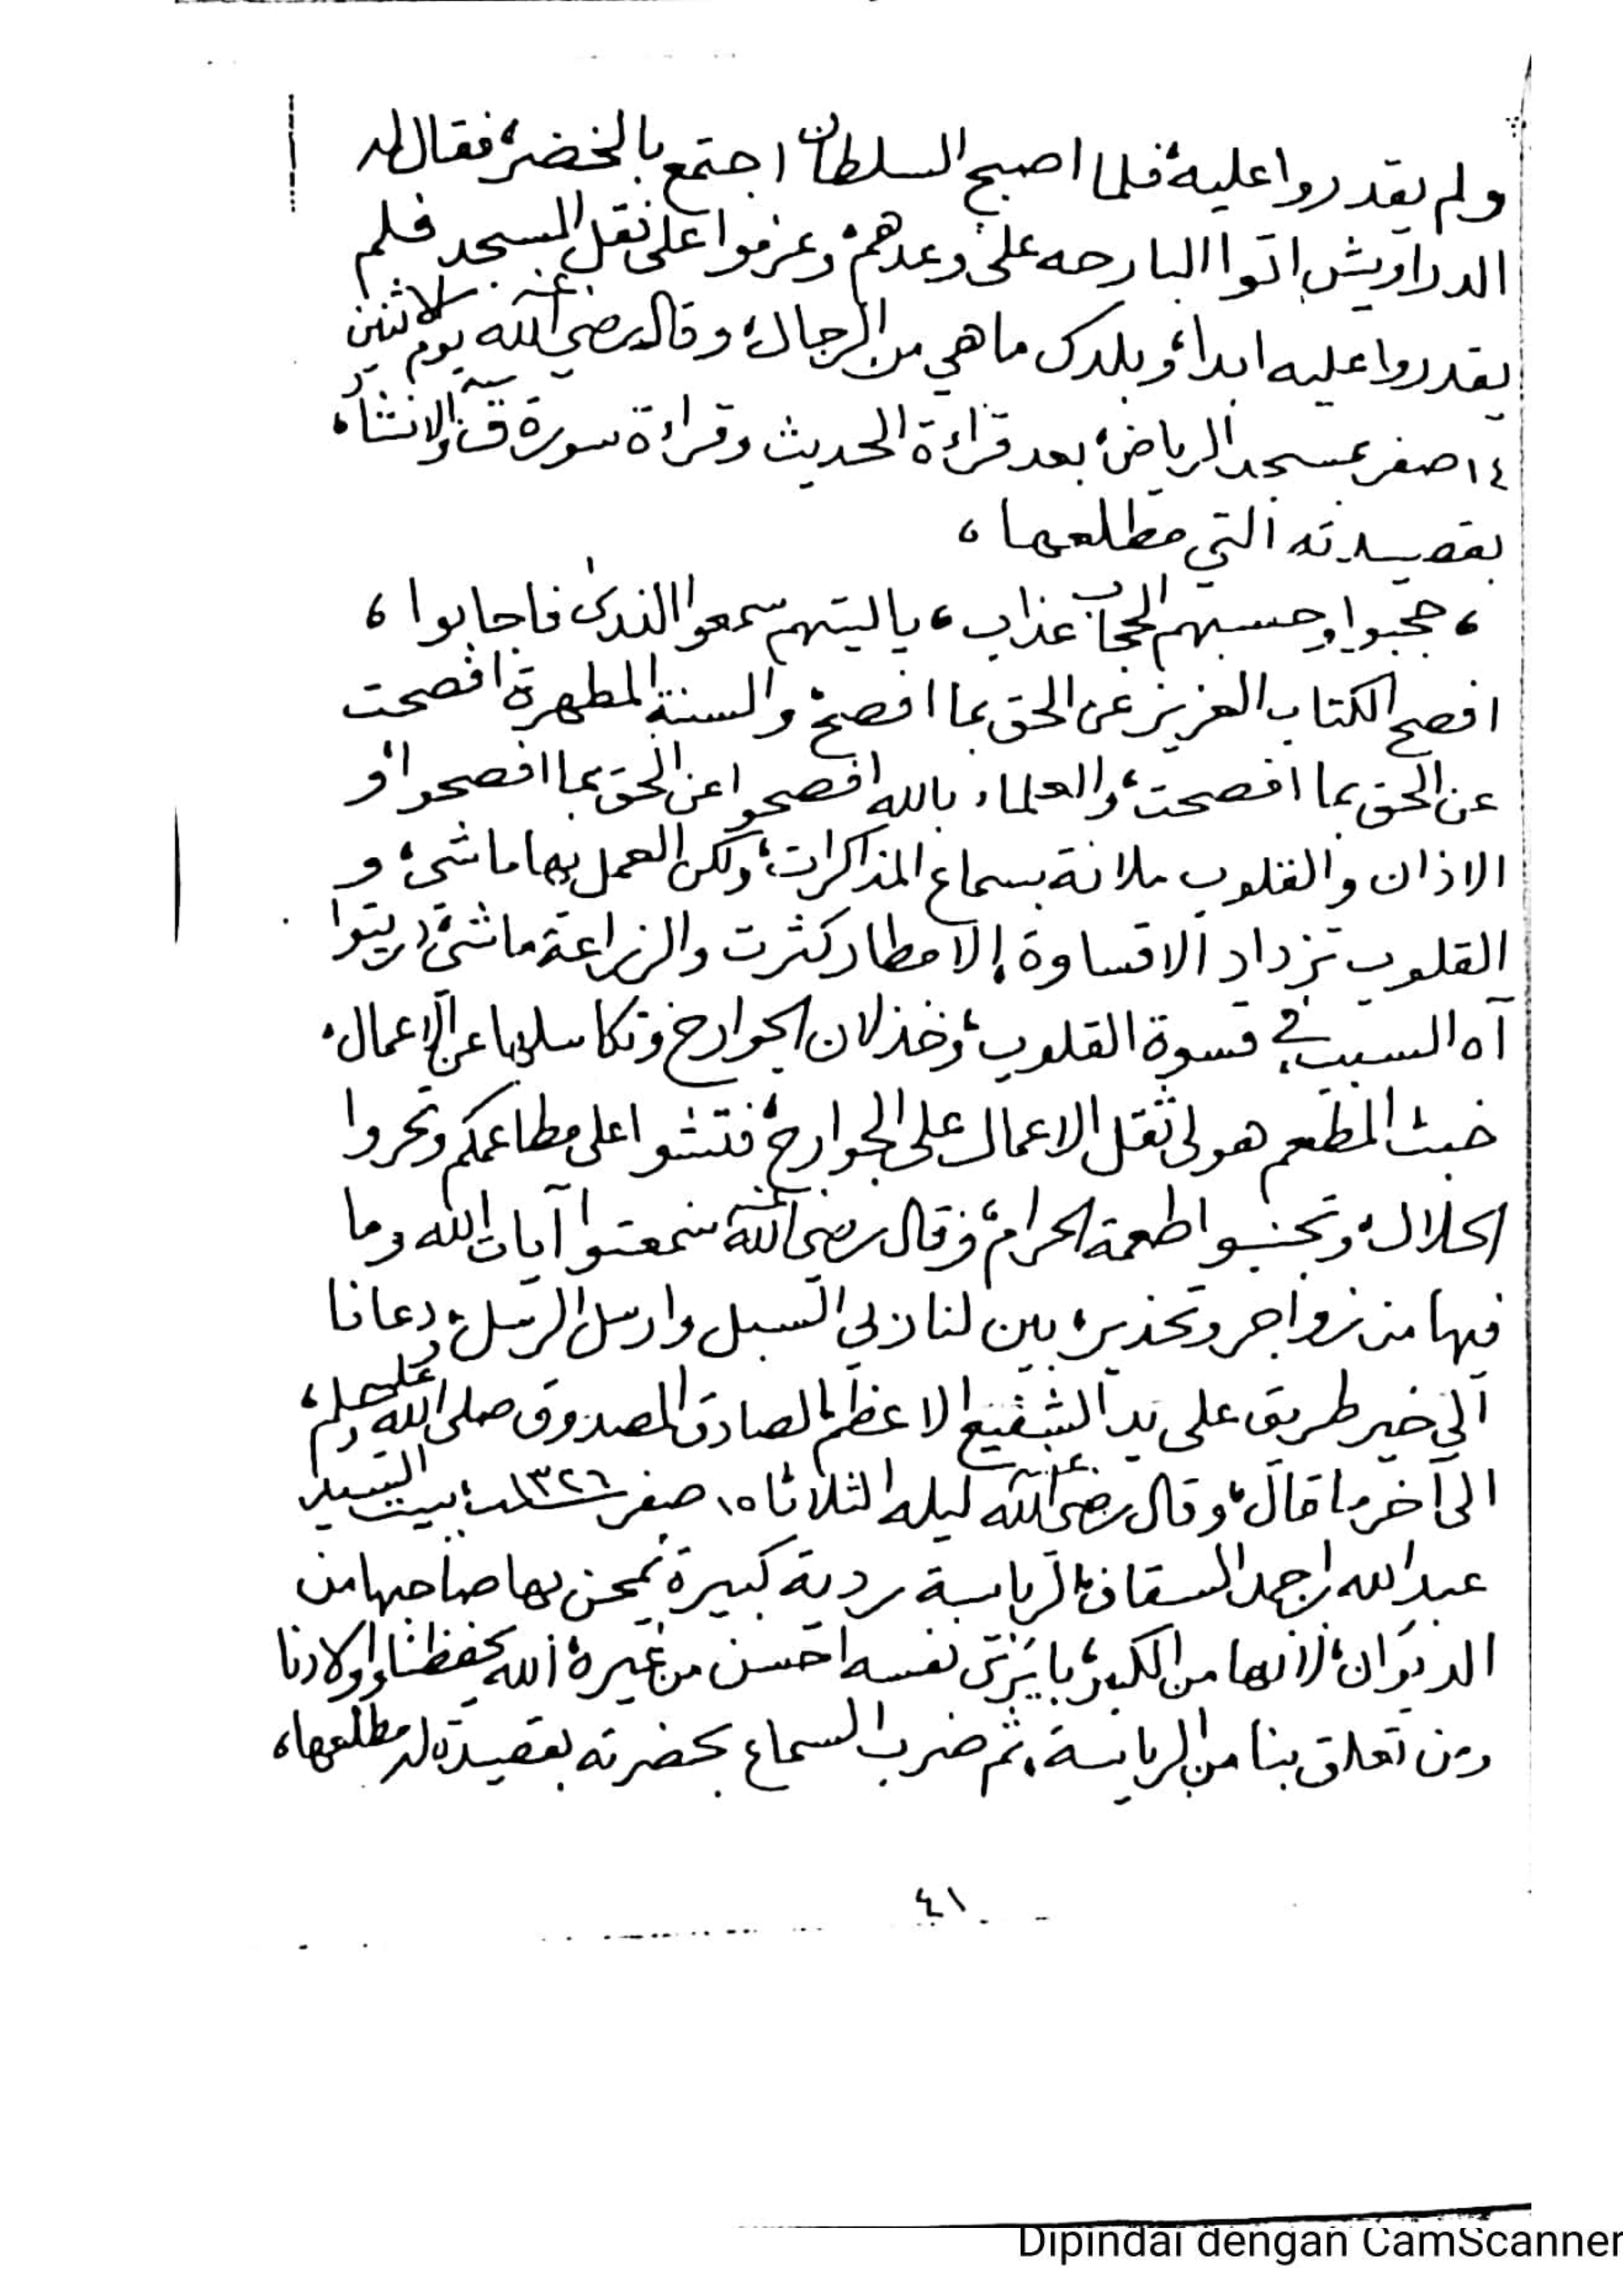 ولم يقدروا عليه، فلما اصبح السلطان اجتمع بالخضر، فقال له
الدراويش اتوا البارحه على وعدهم، وعزموا على نقل المسجد فلم
يقدروا عليه ابدا، وبلدك ما هي من الرجال، وقال رضي الله عنه يوم الاثنين
١٤ صفر بمسجد الرياض، بعد قراءة الحديث وقراءة سورة ق، والانشاد
بقصيدته التي مطلعها،
، حجبوا وحسبهم الحجاب عذاب، ياليتهم سمعوا الندى فاجابوا،
افصح الكتاب العزيز عن الحق بما افصح، والسنة المطهرة افصحت
عن الحق بما افصحت، والعلماء بالله افصحوا عن الحق بما افصحوا، و
الاذان والقلوب ملانة بسماع المذاكرات، ولكن العمل بها ماشي، و
القلوب تزداد الا قساوة، الامطار كثرت والزراعة ماشي، دريتوا
آه السبب في قسوة القلوب، وخذلان الجوارح وتكاسلها عن الاعمال،
خبث المطعم هو لي ثقل الاعمال على الجوارح، فتشوا على مطاعمكم وتحروا
الحلال، وتجنبوا طعمة الحرام، وقال رضي الله عنه سمعتوا آيات الله وما
فيها من زواجر وتحذير، بين لنا ربي السبل وارسل الرسل، ودعانا
الى خير طريق على يد الشفيع الاعظم، الصادق المصدوق صلى الله عليه وسلم،
الى آخر ما قال، وقال رضي الله عنه ليله الثلاثا ١٥ صفر سنة ١٣٢٦ ببيت السيد
عبد الله احمد السقاف، الرياسة ردية كبيرة يمحن بها صاحبها من
الديوان، لانها من الكبر، با يرى نفسه احسن من غيره، الله يحفظنا واولادنا
ومن تعلق بنا من الرياسة، ثم ضرب السماع بحضرته بقصيدة له مطلعها،
٤١
Dipindai dengan CamScanner